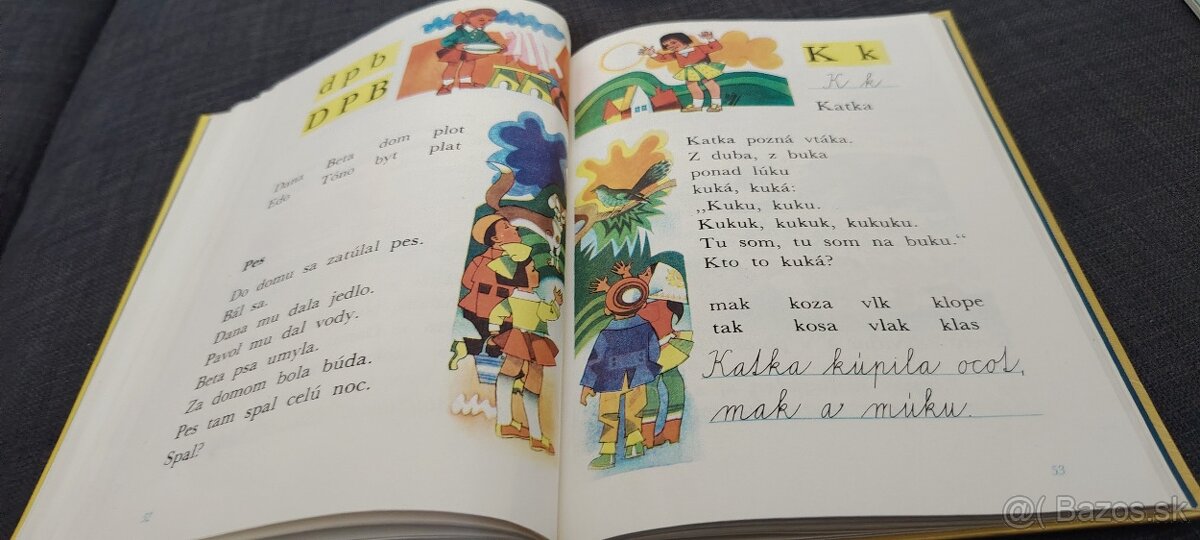 d p b
D P B
Dana Beta dom plot
Edo Tóno byt plat
Pes
Do domu sa zatúlal pes.
Bál sa.
Dana mu dala jedlo.
Pavol mu dal vody.
Beta psa umyla.
Za domom bola búda.
Pes tam spal celú noc.
Spal?
52
K k
K k
Katka
Katka pozná vtáka.
Z duba, z buka
ponad lúku
kuká, kuká:
„Kuku, kuku.
Kukuk, kukuk, kukuku.
Tu som, tu som na buku.“
Kto to kuká?
mak koza vlk klope
tak kosa vlak klas
Katka kúpila ocot,
mak a múku.
53
@( Bazos.sk